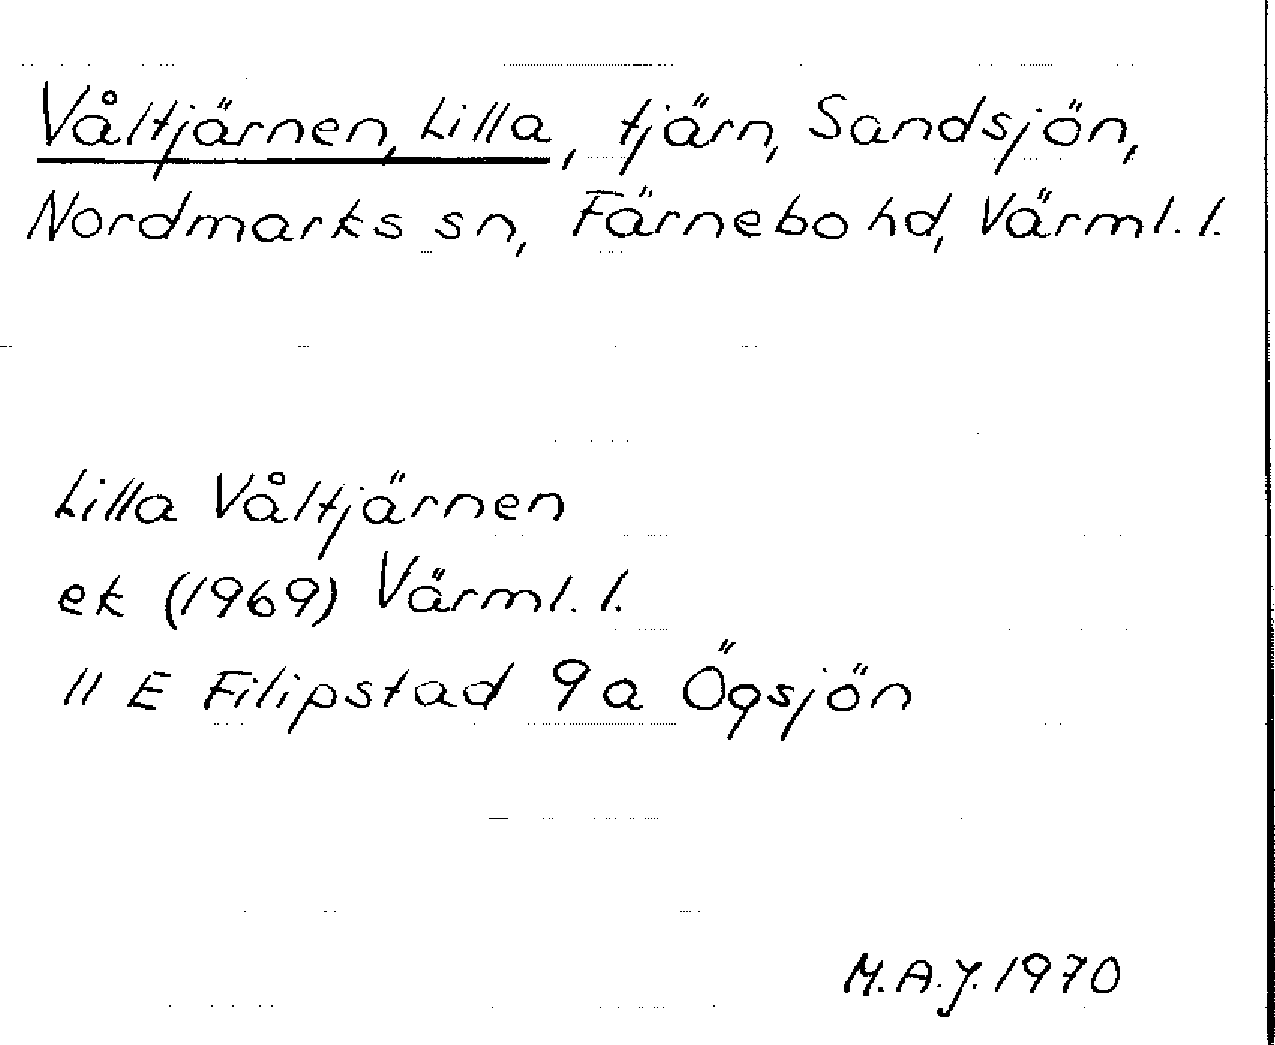 Våltjärnen, Lilla, tjärn, Sandsjön,
Nordmarks sn, Färnebo hd, Värml. l.
Lilla Våltjärnen
ek (1969) Värml. l.
11 E Filipstad 9a Ögsjön
M.A.J. 1970